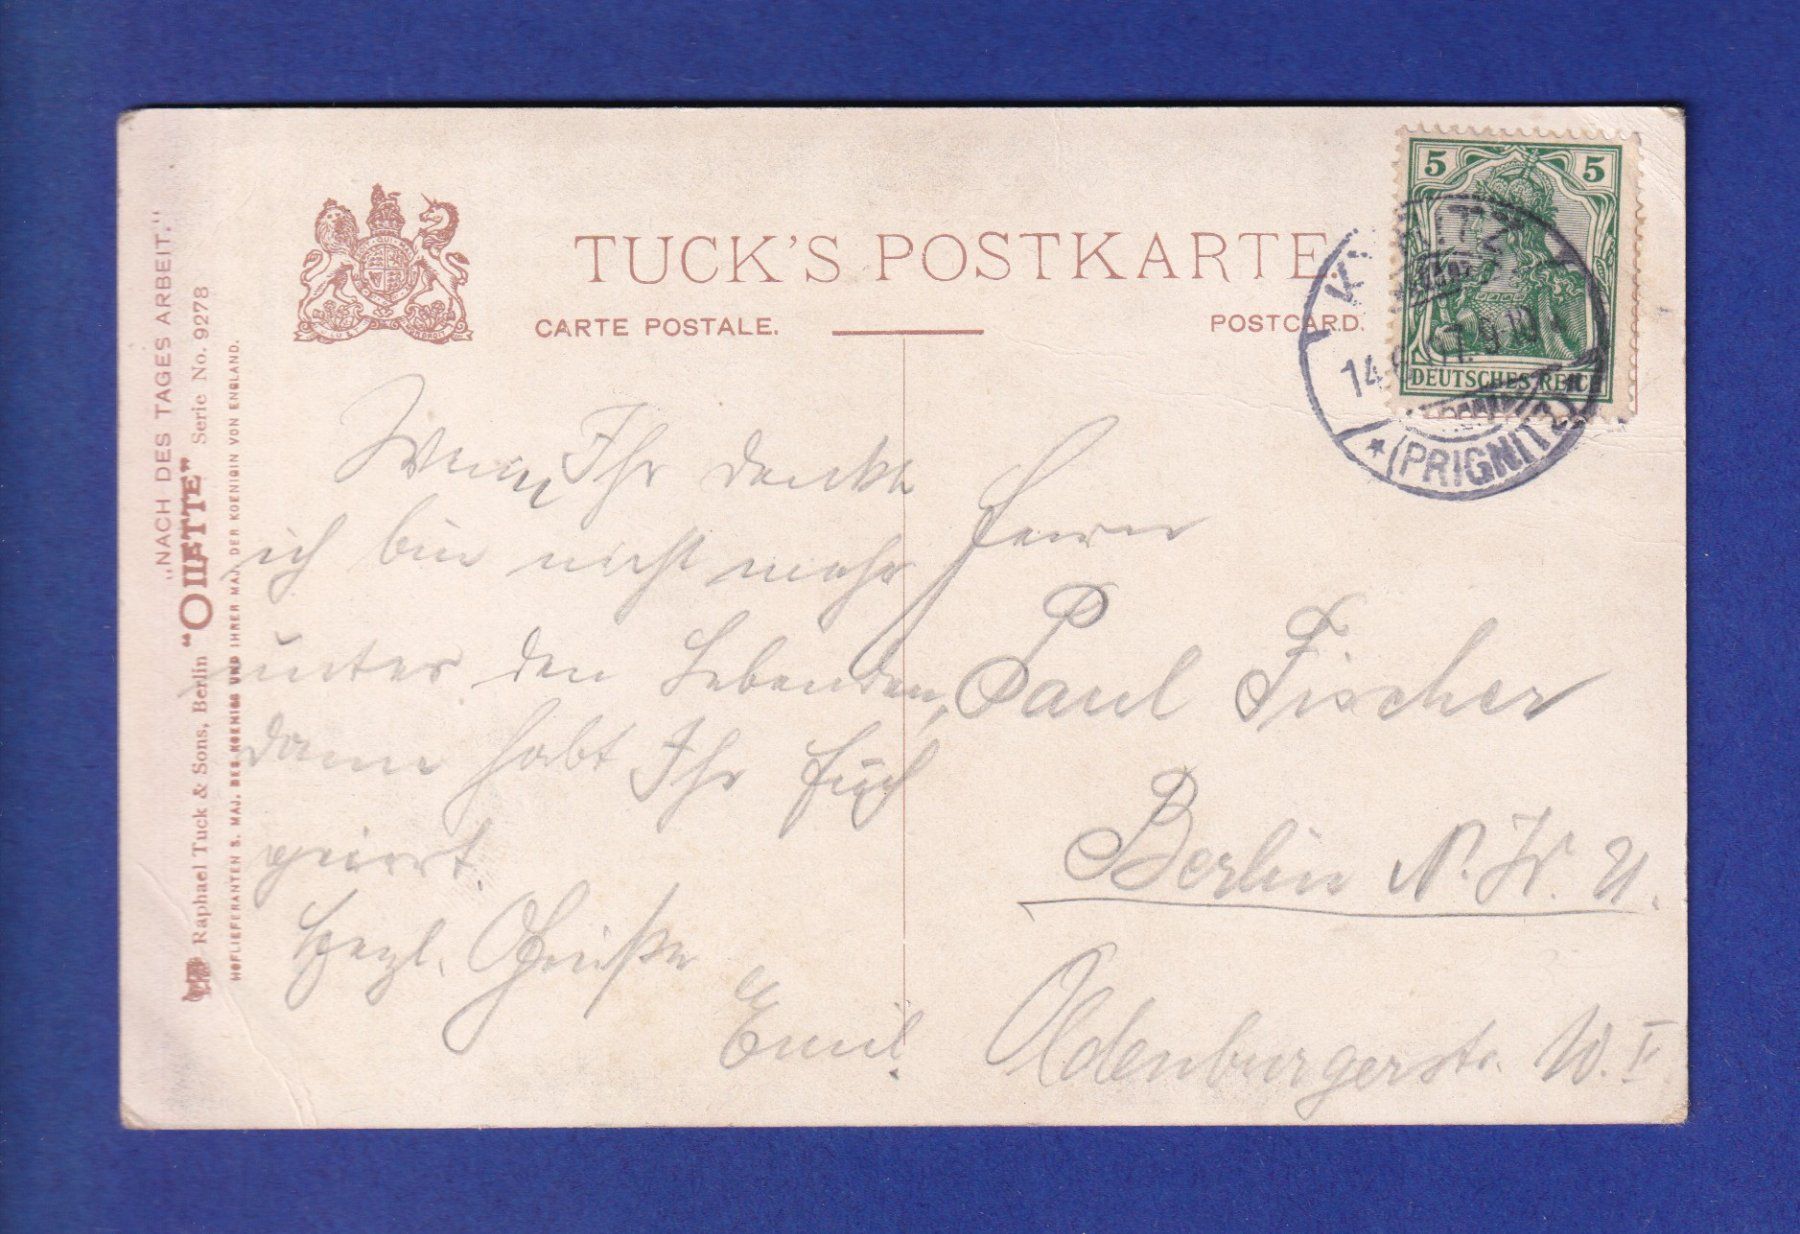 „NACH DES TAGES ARBEIT.“
Raphael Tuck & Sons, Berlin "OILETTE" Serie No. 9278
HOFLIEFERANTEN S. MAJ. DES KOENIGS UND IHRER MAJ. DER KOENIGIN VON ENGLAND.
TUCK'S POSTKARTE
CARTE POSTALE.
POSTCARD.
5 5
DEUTSCHES REICH
14. 07. 9-10
* (PRIGNITZ)
Wenn Ihr denkt
ich bin nicht mehr
unter den Lebenden,
dann habt Ihr Euch
geirrt.
Herzl. Grüße
Emil.
Herrn
Paul Fischer
Berlin N.W. 21.
Oldenburgerstr. 10. I